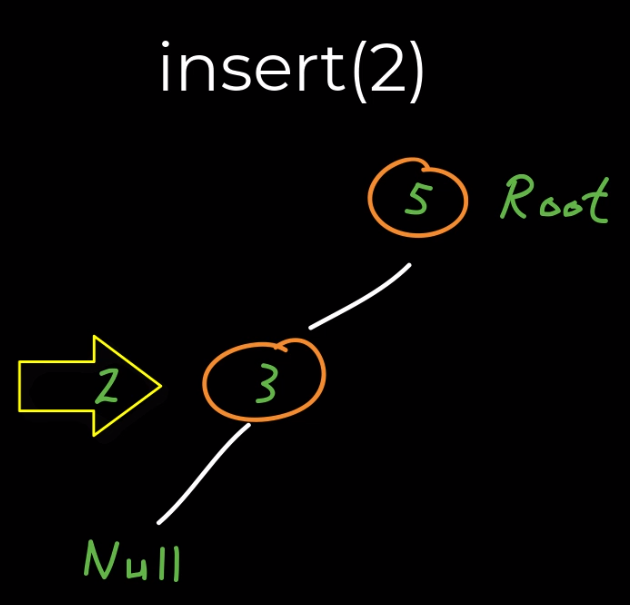 insert(2)
5 Root
2 3
Null